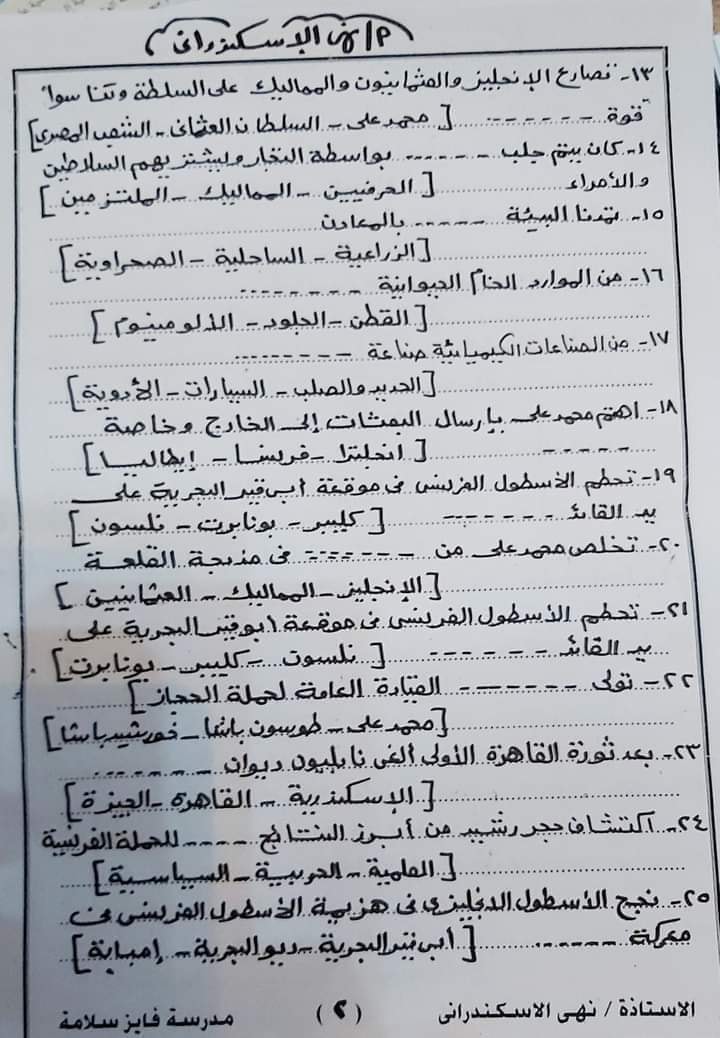 م/ نهى الإسكندرانى
١٣- تصارع الإنجليز والعثمانيون والمماليك على السلطة وتناسوا
قوة ------ [محمد على - السلطان العثمانى - الشعب المصرى]
١٤- كان يتم جلب ------ بواسطة التجار ويشتريهم السلاطين
والأمراء [الحرفيين - المماليك - الملتزمين]
١٥- تمدنا البيئة ----- بالمعادن
[الزراعية - الساحلية - الصحراوية]
١٦- من الموارد الخام الحيوانية -------
[القطن - الجلود - الألومنيوم]
١٧- من الصناعات الكيميائية صناعة --------
[الحديد والصلب - السيارات - الأدوية]
١٨- اهتم محمد على بإرسال البعثات إلى الخارج وخاصة
----- [انجلترا - فرنسا - إيطاليا]
١٩- تحطم الأسطول الفرنسى فى موقعة أبى قير البحرية على
يد القائد ------ [كليبر - بونابرت - نلسون]
٢٠- تخلص محمد على من ------ فى مذبحة القلعة
[الإنجليز - المماليك - العثمانيين]
٢١- تحطم الأسطول الفرنسى فى موقعة أبوقير البحرية على
يد القائد ------ [نلسون - كليبر - بونابرت]
٢٢- تولى ------- القيادة العامة لحملة الحجاز]
[محمد على - طوسون باشا - خورشيد باشا]
٢٣- بعد ثورة القاهرة الأولى ألغى نابليون ديوان ------
[الإسكندرية - القاهرة - الجيزة]
٢٤- اكتشاف حجر رشيد من أبرز النتائج ---- للحملة الفرنسية
[العلمية - الحربية - السياسية]
٢٥- نجح الأسطول الانجليزى فى هزيمة الأسطول الفرنسى فى
معركة ------ [أبى قير البحرية - ديو البحرية - إمبابة]
الاستاذة / نهى الاسكندرانى (٢) مدرسة فايز سلامة